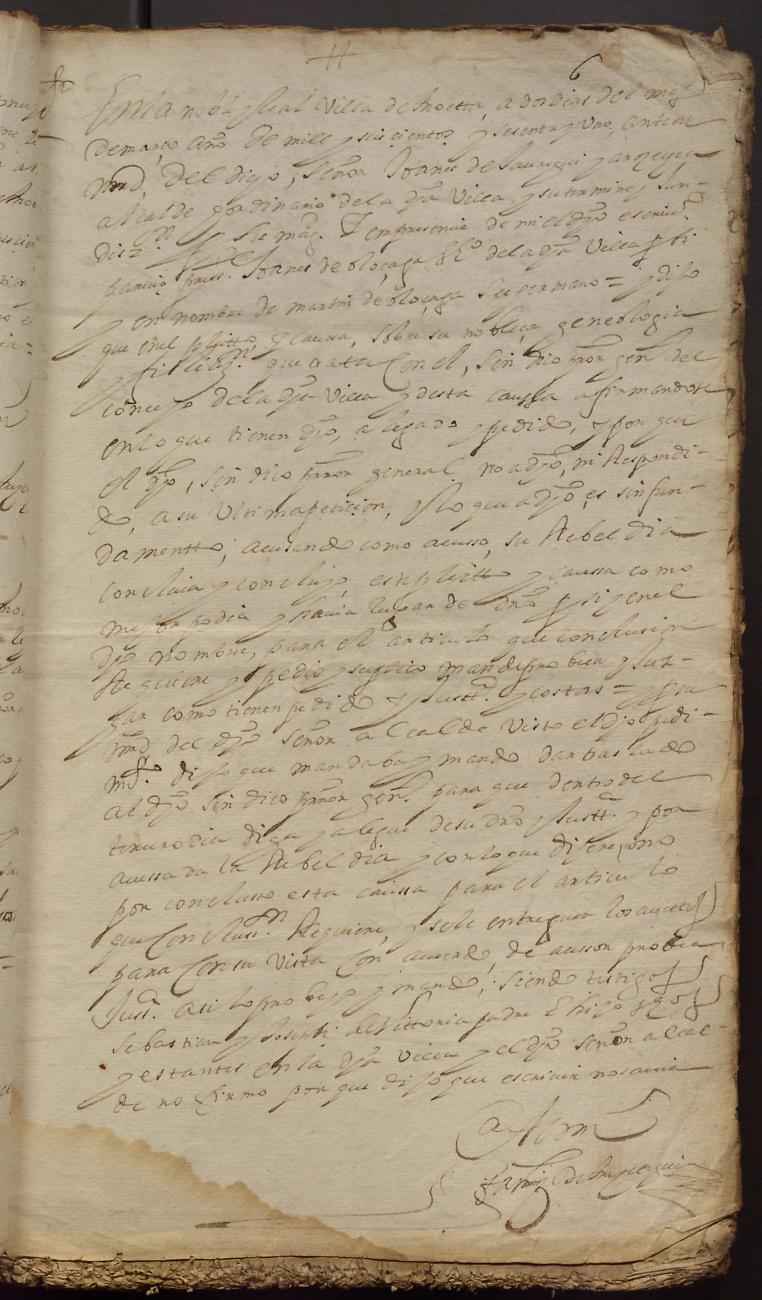 6
En la noble y leal Villa de hoetta, a dos dias del mes
de março año de mill y seiscientos y sesenta y Uno, ante su
mrd, del dicho, Señor Joanes de Jauregui
alcalde hordinario de la dha Villa y su termino y Juri-
diz.on por Su mag. I en presencia de mi el dho escriu.o
parecio press.te Joanes de oloçaga Vz.o de la dha Villa por si
y en nombre de martin de oloçaga Su hermano = y dijo
que en el pleitto, y causa, sobre su nobleça, genelogia
y filiaz.on que trata Con el, sindico gen.l del
conçejo de la dha Villa y desta caussa afirmandose
en lo que tienen dho, alegado y pedido, y por que
el dho, sindico general no a dho, ni Respondi-
do, a su Vltima peticion, y lo que a dho, es sin fun-
damentto, acusando como acusso, su Rebeldia
concluia y concluyo este pleitto y caussa como
mejor podia y hauia lugar de dro por si y en el
dho nombre, para el articulo que conclusion
Requiere y pidio y suplico mande pro bea y Juz-
gar como tienen pedido y Justt.a y costas = y Su
mrd del dho Señor alcalde Visto el dho pedi-
mi.o dijo que mandaba y mando dar traslado
al dho sindico gen.l para que dentro del
tercero dia diga y alegue de su dro y Justt.a y por
acussada la Rebeldia y con lo que dijere o no
por conclusso esta caussa para el articulo
que Conclussi.on Requiere, y se le entreguen los auttos
para Con su Vista Con acuerdo de asesor probea
Just.a asi lo probeyo y mando, siendo testigos
Sebastian y Joseph de Vittoria padre E hijo Vz.os
y estantes en la dha Villa y el dho Señor alcal-
de no firmo por que dijo que escriuir no sauia
Ante mi